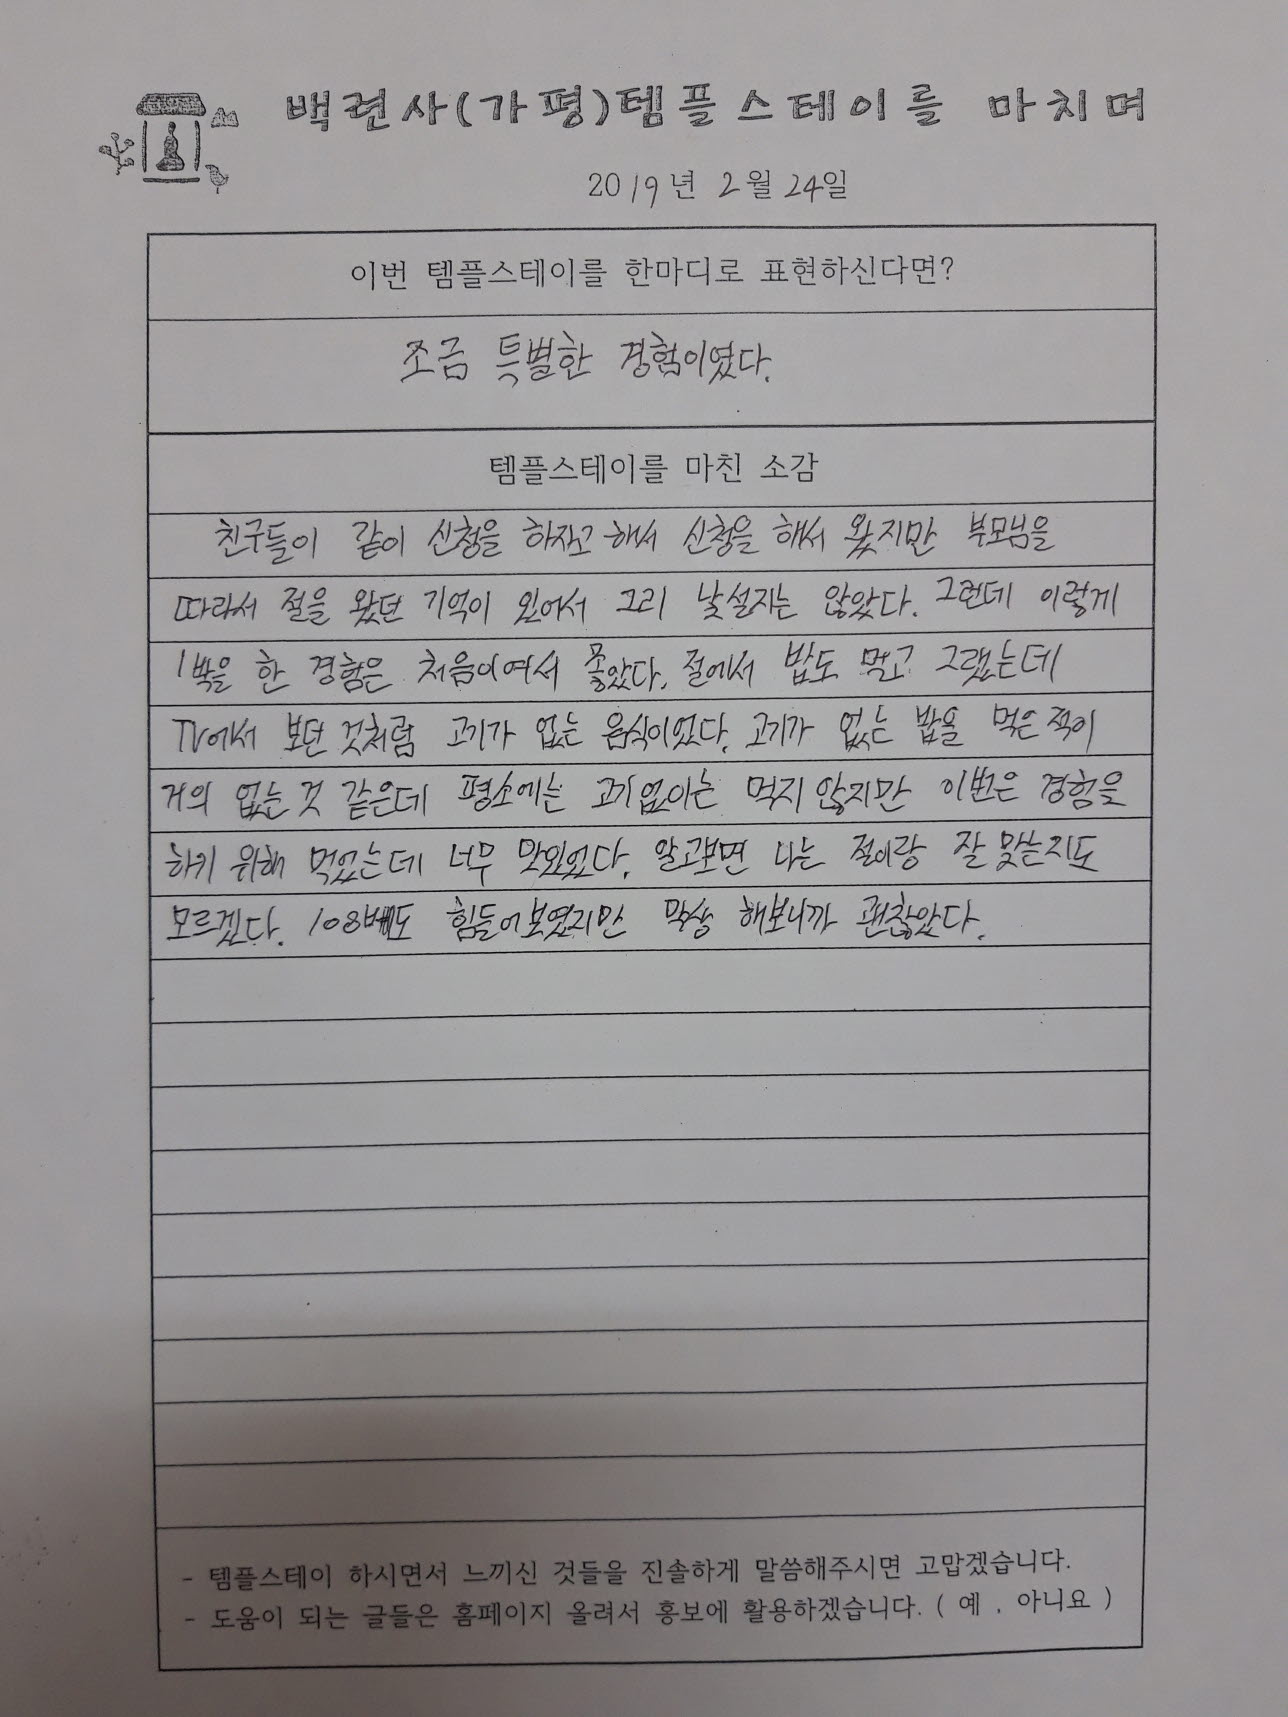 백련사(가평)템플스테이를 마치며
2019년 2월 24일
이번 템플스테이를 한마디로 표현하신다면?
조금 특별한 경험이였다.
템플스테이를 마친 소감
친구들이 같이 신청을 하자고 해서 신청을 해서 왔지만 부모님을
따라서 절을 왔던 기억이 있어서 그리 낯설지는 않았다. 그런데 이렇게
1박을 한 경험은 처음이여서 좋았다. 절에서 밥도 먹고 그랬는데
TV에서 보던 것처럼 고기가 없는 음식이었다. 고기가 없는 밥을 먹은 적이
거의 없는 것 같은데 평소에는 고기없이는 먹지 않지만 이번은 경험을
하기 위해 먹었는데 너무 맛있었다. 알고보면 나는 절이랑 잘 맞는지도
모르겠다. 108배도 힘들어보였지만 막상 해보니까 괜찮았다.
- 템플스테이 하시면서 느끼신 것들을 진솔하게 말씀해주시면 고맙겠습니다.
- 도움이 되는 글들은 홈페이지 올려서 홍보에 활용하겠습니다. ( 예 , 아니요 )